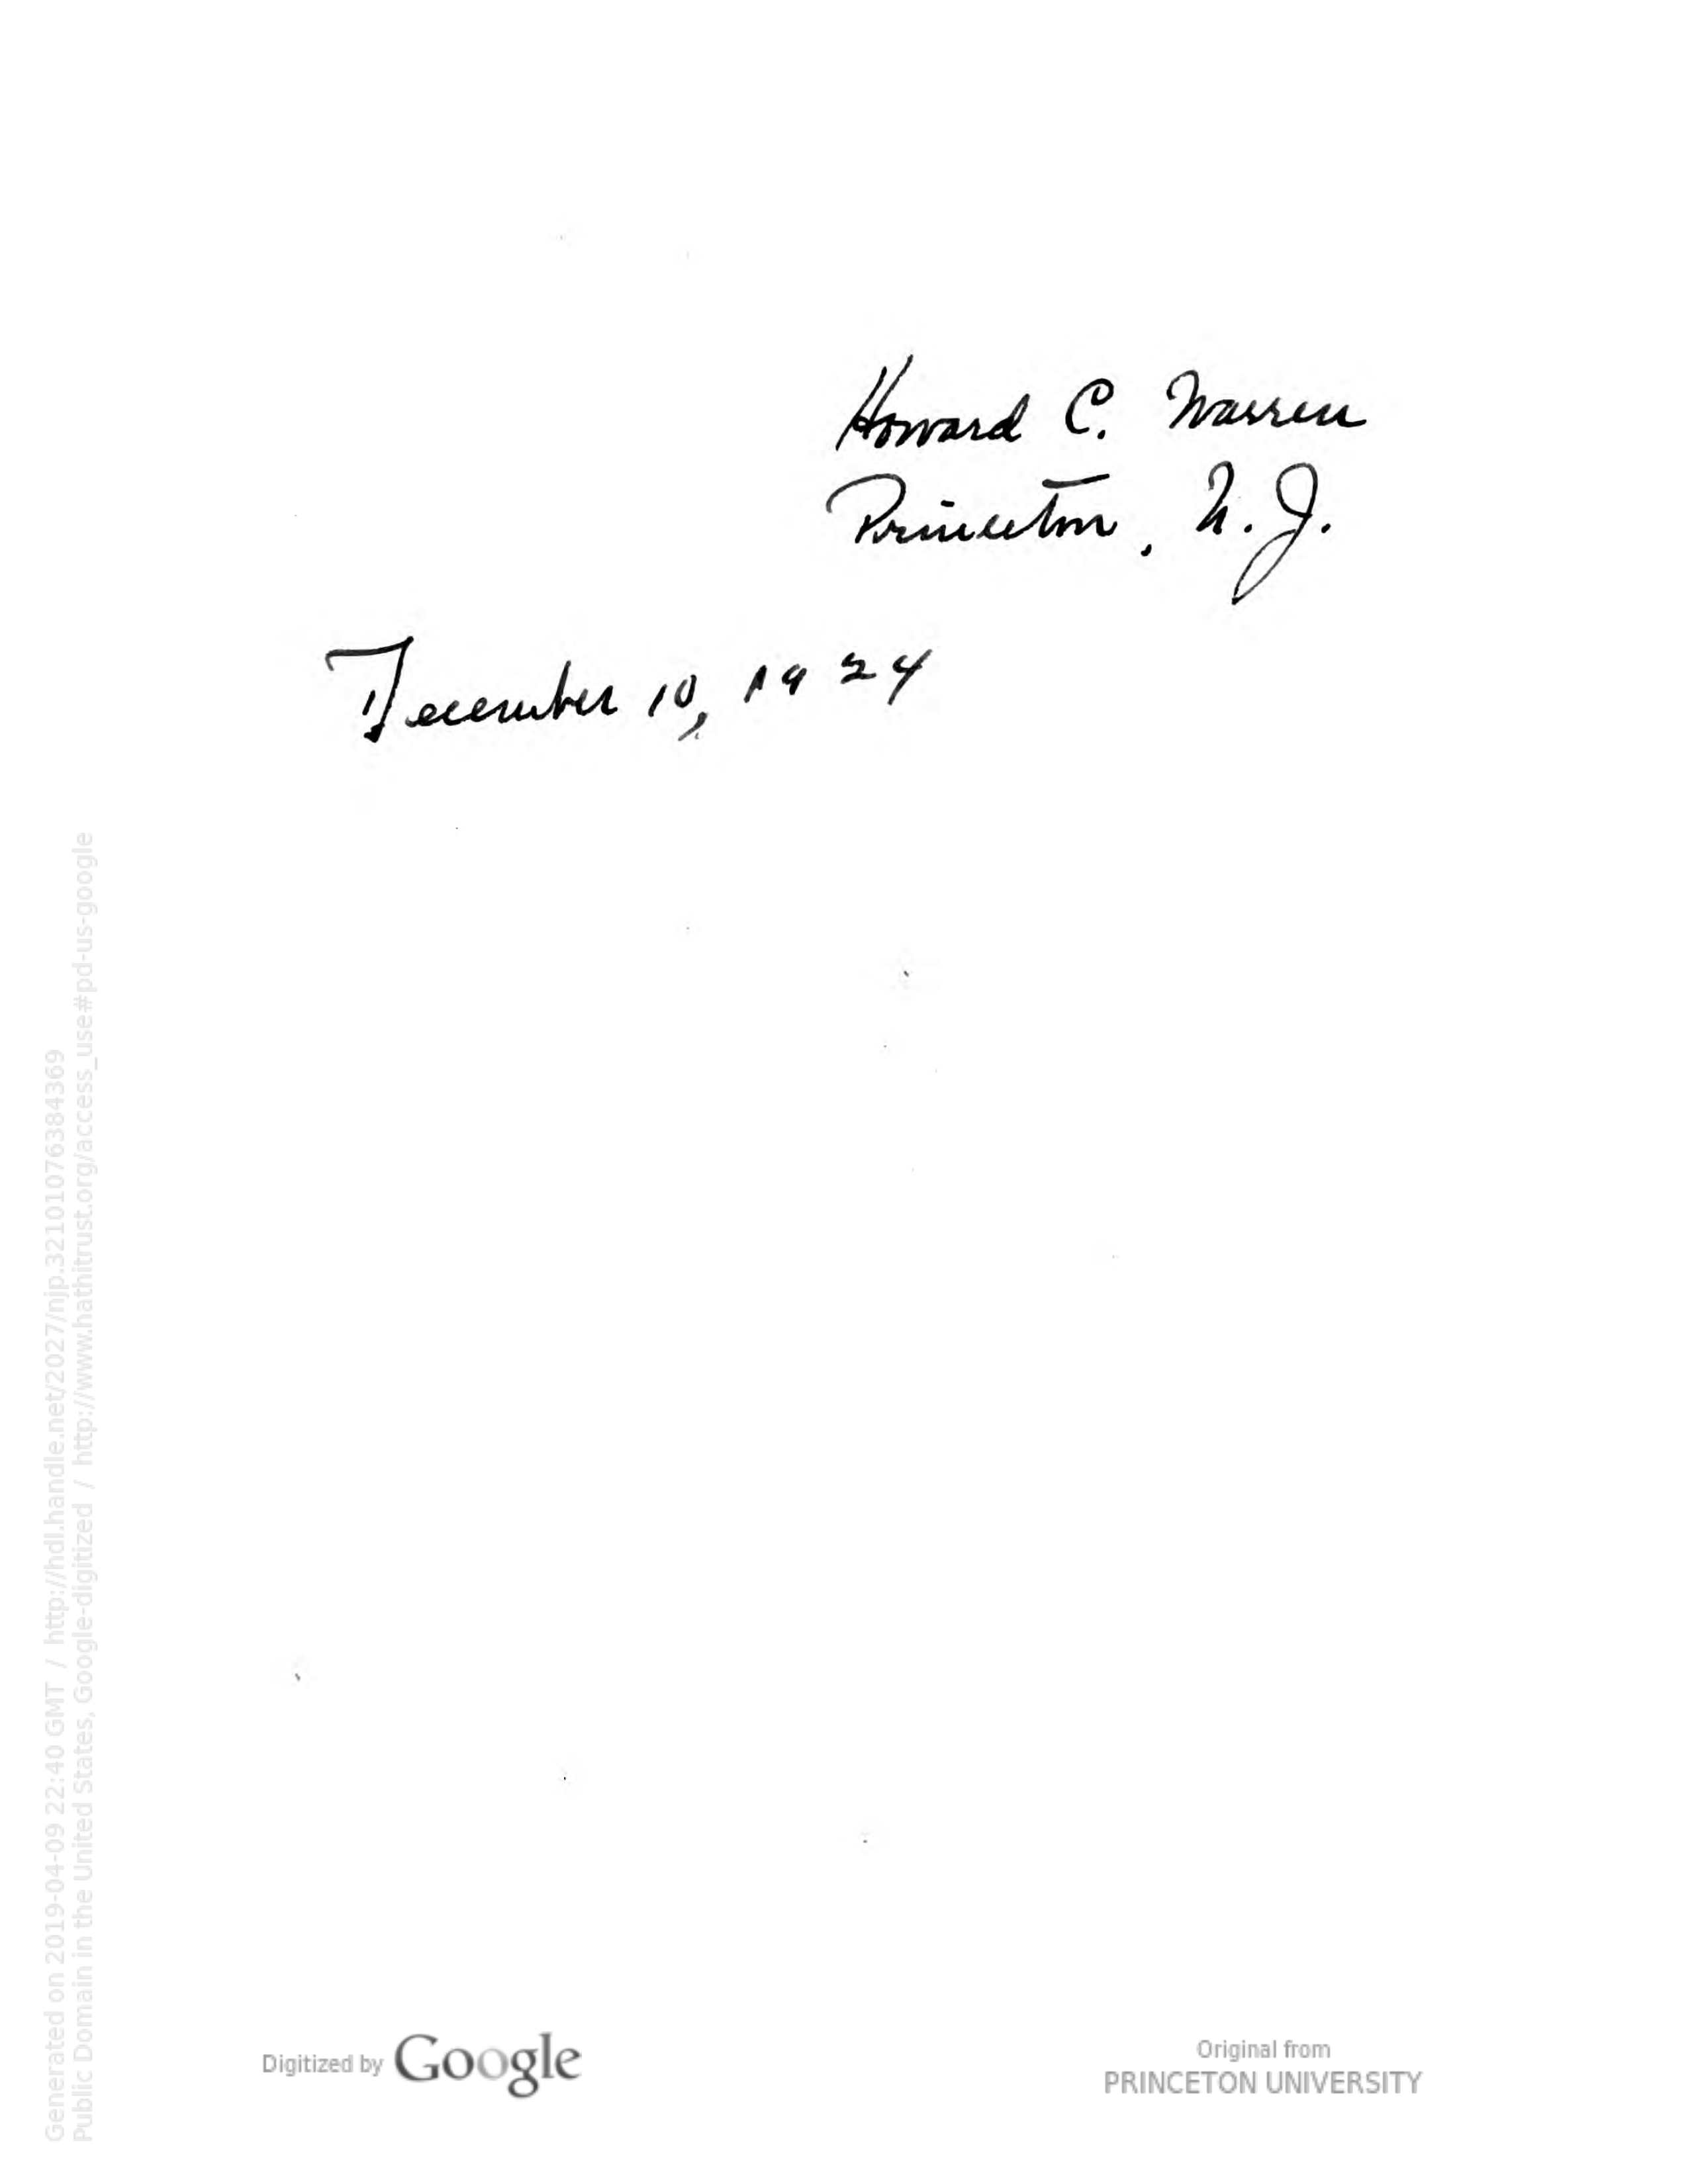 Howard C. Warren
Princeton, N. J.
December 10, 1924
Generated on 2019-04-09 22:40 GMT / http://hdl.handle.net/2027/njp.32101076384369
Public Domain in the United States, Google-digitized / http://www.hathitrust.org/access_use#pd-us-google
Digitized by Google
Original from
PRINCETON UNIVERSITY